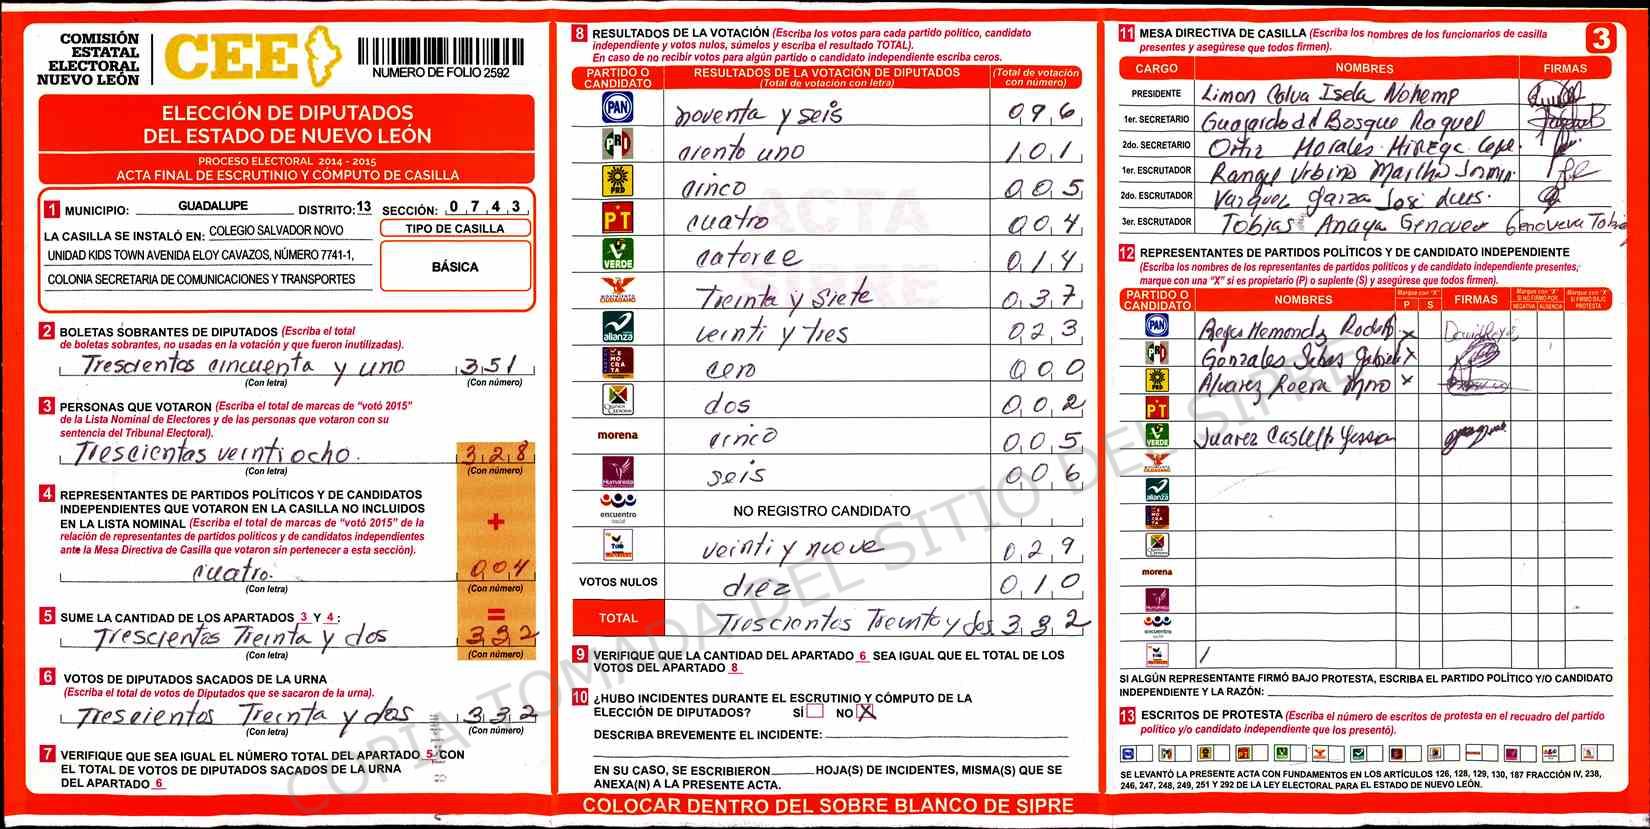 COMISIÓN
ESTATAL
ELECTORAL
NUEVO LEÓN
CEE
NUMERO DE FOLIO 2592
ELECCIÓN DE DIPUTADOS
DEL ESTADO DE NUEVO LEÓN
PROCESO ELECTORAL 2014 - 2015
ACTA FINAL DE ESCRUTINIO Y CÓMPUTO DE CASILLA
1 MUNICIPIO: GUADALUPE DISTRITO: 13 SECCIÓN: 0 7 4 3
LA CASILLA SE INSTALÓ EN: COLEGIO SALVADOR NOVO
UNIDAD KIDS TOWN AVENIDA ELOY CAVAZOS, NÚMERO 7741-1,
COLONIA SECRETARIA DE COMUNICACIONES Y TRANSPORTES
TIPO DE CASILLA
BÁSICA
2 BOLETAS SOBRANTES DE DIPUTADOS (Escriba el total
de boletas sobrantes, no usadas en la votación y que fueron inutilizadas).
Trescientos cincuenta y uno 351
(Con letra) (Con número)
3 PERSONAS QUE VOTARON (Escriba el total de marcas de "votó 2015"
de la Lista Nominal de Electores y de las personas que votaron con su
sentencia del Tribunal Electoral).
Trescientas veintiocho. 328
(Con letra) (Con número)
4 REPRESENTANTES DE PARTIDOS POLÍTICOS Y DE CANDIDATOS
INDEPENDIENTES QUE VOTARON EN LA CASILLA NO INCLUIDOS
EN LA LISTA NOMINAL (Escriba el total de marcas de "votó 2015" de la
relación de representantes de partidos políticos y de candidatos independientes
ante la Mesa Directiva de Casilla que votaron sin pertenecer a esta sección).
+
cuatro. 004
(Con letra) (Con número)
=
5 SUME LA CANTIDAD DE LOS APARTADOS 3 Y 4 :
Trescientos Treinta y dos 332
(Con letra) (Con número)
6 VOTOS DE DIPUTADOS SACADOS DE LA URNA
(Escriba el total de votos de Diputados que se sacaron de la urna).
Trescientos Treinta y dos 332
(Con letra) (Con número)
7 VERIFIQUE QUE SEA IGUAL EL NÚMERO TOTAL DEL APARTADO 5 CON
EL TOTAL DE VOTOS DE DIPUTADOS SACADOS DE LA URNA
DEL APARTADO 6
8 RESULTADOS DE LA VOTACIÓN (Escriba los votos para cada partido politico, candidato
independiente y votos nulos, súmelos y escriba el resultado TOTAL).
En caso de no recibir votos para algún partido o candidato independiente escriba ceros.
PARTIDO O CANDIDATO RESULTADOS DE LA VOTACIÓN DE DIPUTADOS (Total de votación con letra) (Total de votación con número)
PAN noventa y seis 096
PRI ciento uno 101
PRD cinco 005
PT cuatro 004
VERDE catorce 014
MOVIMIENTO CIUDADANO Treinta y siete 037
alianza veinti y tres 023
DEMOCRATA cero 000
dos 002
morena cinco 005
Humanista seis 006
encuentro social NO REGISTRO CANDIDATO
veinti y nueve 029
VOTOS NULOS diez 010
TOTAL Trescientos Treinta y dos 332
9 VERIFIQUE QUE LA CANTIDAD DEL APARTADO 6 SEA IGUAL QUE EL TOTAL DE LOS
VOTOS DEL APARTADO 8
10 ¿HUBO INCIDENTES DURANTE EL ESCRUTINIO Y CÓMPUTO DE LA
ELECCIÓN DE DIPUTADOS? SÍ NO X
DESCRIBA BREVEMENTE EL INCIDENTE:
EN SU CASO, SE ESCRIBIERON HOJA(S) DE INCIDENTES, MISMA(S) QUE SE
ANEXA(N) A LA PRESENTE ACTA.
COLOCAR DENTRO DEL SOBRE BLANCO DE SIPRE
3
11 MESA DIRECTIVA DE CASILLA (Escriba los nombres de los funcionarios de casilla
presentes y asegúrese que todos firmen).
CARGO NOMBRES FIRMAS
PRESIDENTE Limon Calva Isela Nohemp
1er. SECRETARIO Guajardo d Bosque Raquel
2do. SECRETARIO Ortiz Morales
1er. ESCRUTADOR Rangel Urbino Martha
2do. ESCRUTADOR Vazquez garza Jose Luis.
3er. ESCRUTADOR Tobias Anaya Genovev Genoveva Tobias
12 REPRESENTANTES DE PARTIDOS POLÍTICOS Y DE CANDIDATO INDEPENDIENTE
(Escriba los nombres de los representantes de partidos politicos y de candidato independiente presentes,
marque con una "X" si es propietario (P) o suplente (S) y asegúrese que todos firmen).
PARTIDO O CANDIDATO NOMBRES Marque con "X" P S FIRMAS Marque con "X" SI NO FIRMÓ POR: NEGATIVA AUSENCIA Marque con "X" SI FIRMÓ BAJO PROTESTA
PAN Reyes Rodolf X
PRI Gonzales X
PRD Alvarez X
PT
VERDE Juarez
MOVIMIENTO CIUDADANO
alianza
DEMOCRATA
morena
Humanista
encuentro social
SI ALGÚN REPRESENTANTE FIRMÓ BAJO PROTESTA, ESCRIBA EL PARTIDO POLÍTICO Y/O CANDIDATO
INDEPENDIENTE Y LA RAZÓN:
13 ESCRITOS DE PROTESTA (Escriba el número de escritos de protesta en el recuadro del partido
politico y/o candidato independiente que los presentó).
SE LEVANTÓ LA PRESENTE ACTA CON FUNDAMENTOS EN LOS ARTÍCULOS 126, 128, 129, 130, 187 FRACCIÓN IV, 238,
246, 247, 248, 249, 251 Y 292 DE LA LEY ELECTORAL PARA EL ESTADO DE NUEVO LEÓN.
ACTA
SIPRE
COPIA TOMADA DEL SITIO DEL SIPRE